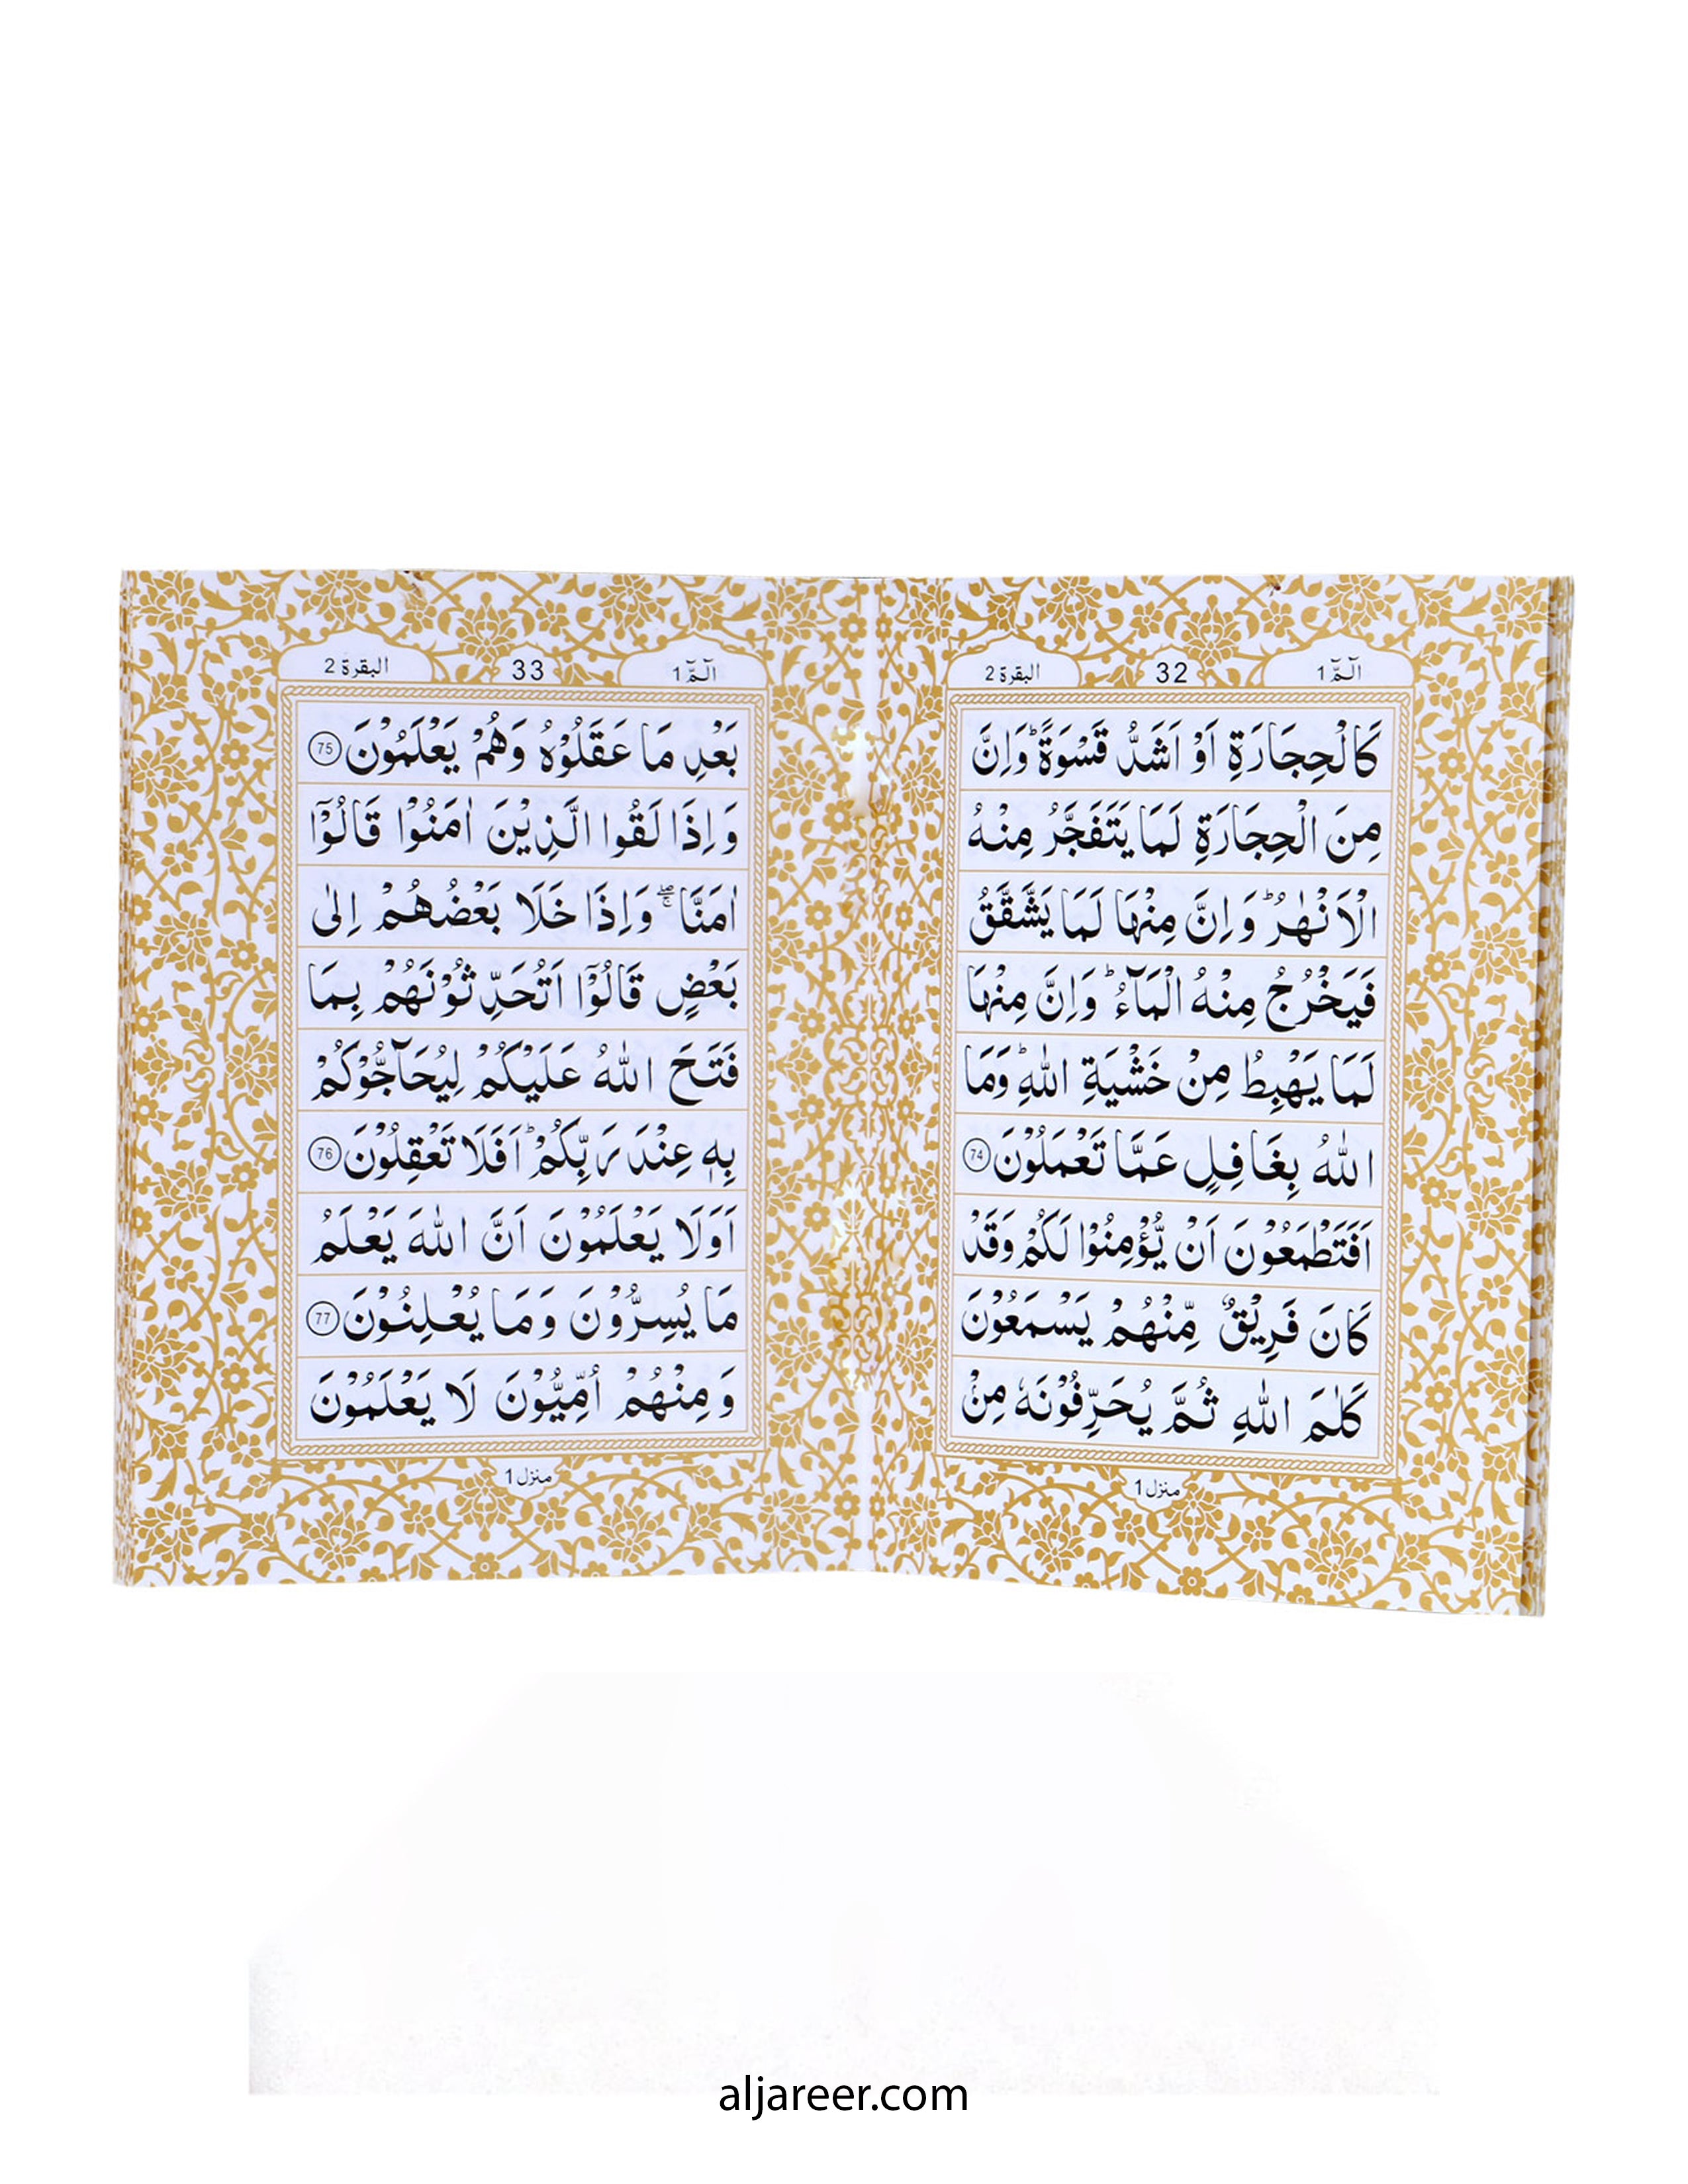 الٓمّٓ 1
32
البقرة 2
كَالْحِجَارَةِ اَوْ اَشَدُّ قَسْوَةً ؕ وَاِنَّ
مِنَ الْحِجَارَةِ لَمَا يَتَفَجَّرُ مِنْهُ
الْاَنْهٰرُ ؕ وَاِنَّ مِنْهَا لَمَا يَشَّقَّقُ
فَيَخْرُجُ مِنْهُ الْمَآءُ ؕ وَاِنَّ مِنْهَا
لَمَا يَهْبِطُ مِنْ خَشْيَةِ اللّٰهِ ؕ وَمَا
اللّٰهُ بِغَافِلٍ عَمَّا تَعْمَلُوْنَ 74
اَفَتَطْمَعُوْنَ اَنْ يُّؤْمِنُوْا لَكُمْ وَقَدْ
كَانَ فَرِيْقٌ مِّنْهُمْ يَسْمَعُوْنَ
كَلٰمَ اللّٰهِ ثُمَّ يُحَرِّفُوْنَهٗ مِنْۢ
منزل 1
الٓمّٓ 1
33
البقرة 2
بَعْدِ مَا عَقَلُوْهُ وَهُمْ يَعْلَمُوْنَ 75
وَاِذَا لَقُوا الَّذِيْنَ اٰمَنُوْا قَالُوْٓا
اٰمَنَّا ۖۚ وَاِذَا خَلَا بَعْضُهُمْ اِلٰى
بَعْضٍ قَالُوْٓا اَتُحَدِّثُوْنَهُمْ بِمَا
فَتَحَ اللّٰهُ عَلَيْكُمْ لِيُحَآجُّوْكُمْ
بِهٖ عِنْدَ رَبِّكُمْ ؕ اَفَلَا تَعْقِلُوْنَ 76
اَوَلَا يَعْلَمُوْنَ اَنَّ اللّٰهَ يَعْلَمُ
مَا يُسِرُّوْنَ وَمَا يُعْلِنُوْنَ 77
وَمِنْهُمْ اُمِّيُّوْنَ لَا يَعْلَمُوْنَ
منزل 1
aljareer.com